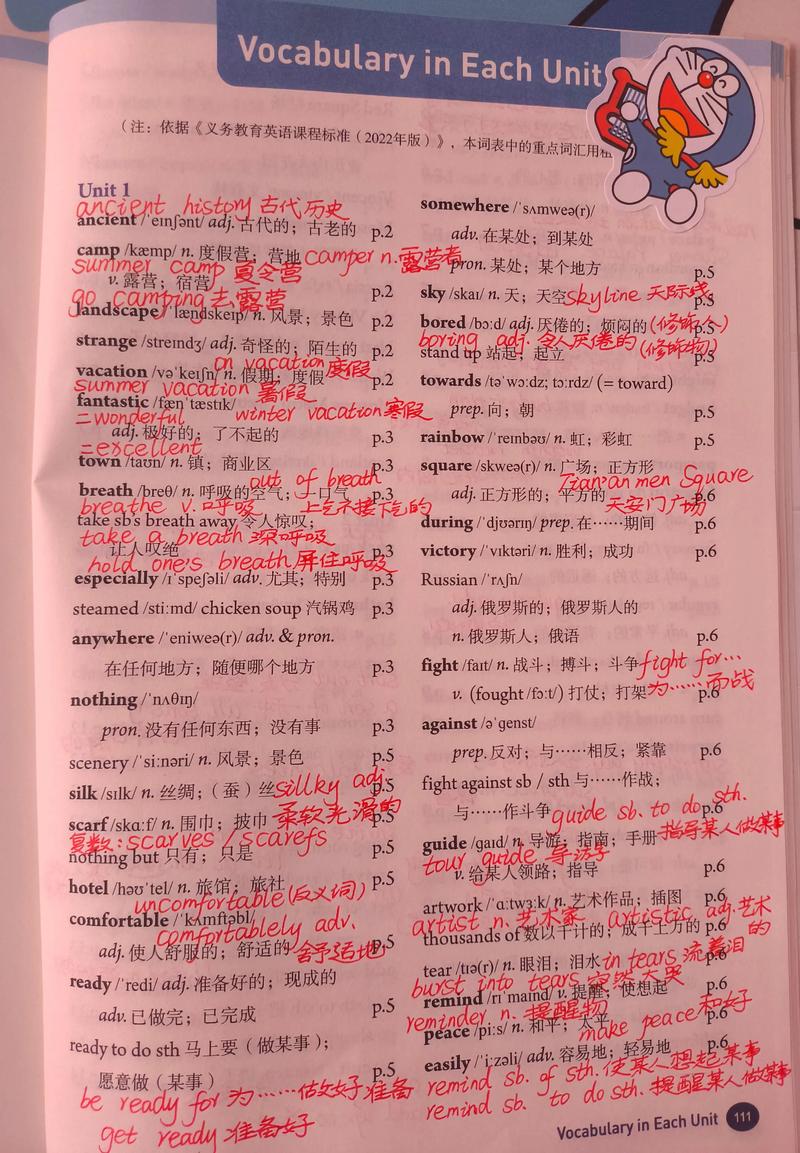 Vocabulary in Each Unit
（注：依据《义务教育英语课程标准（2022年版）》，本词表中的重点词汇用
Unit 1
ancient history 古代历史
ancient /ˈeɪnʃənt/ adj. 古代的；古老的 p.2
camp /kæmp/ n. 度假营；营地 camper n. 露营者
summer camp 夏令营
v. 露营；宿营 p.2
go camping 去露营
landscape /ˈlændskeɪp/ n. 风景；景色 p.2
strange /streɪndʒ/ adj. 奇怪的；陌生的 p.2
on vacation 度假
vacation /vəˈkeɪʃn/ n. 假期；度假 p.2
summer vacation 暑假
fantastic /fænˈtæstɪk/
=wonderful winter vacation 寒假
adj. 极好的；了不起的 p.3
=excellent
town /taʊn/ n. 镇；商业区 p.3
out of breath
breath /breθ/ n. 呼吸的空气；一口气 p.3
breathe v. 呼吸 上气不接下气的
take sb's breath away 令人惊叹；
take a breath 深呼吸
让人叹绝 p.3
hold one's breath 屏住呼吸
especially /ɪˈspeʃəli/ adv. 尤其；特别 p.3
steamed /stiːmd/ chicken soup 汽锅鸡 p.3
anywhere /ˈeniweə(r)/ adv. & pron.
在任何地方；随便哪个地方 p.3
nothing /ˈnʌθɪŋ/
pron. 没有任何东西；没有事 p.3
scenery /ˈsiːnəri/ n. 风景；景色 p.5
silk /sɪlk/ n. 丝绸；（蚕）丝 sillky adj. p.5
柔软光滑的
scarf /skɑːf/ n. 围巾；披巾 p.5
复数：scarves / scarefs
nothing but 只有；只是 p.5
hotel /həʊˈtel/ n. 旅馆；旅社 p.5
uncomfortable (反义词)
comfortable /ˈkʌmftəbl/
comfortablely adv.
adj. 使人舒服的；舒适的 舒适地 p.5
ready /ˈredi/ adj. 准备好的；现成的
adv. 已做完；已完成 p.5
ready to do sth 马上要（做某事）；
愿意做（某事） p.5
be ready for 为……做好准备
get ready 准备好
somewhere /ˈsʌmweə(r)/
adv. 在某处；到某处
pron. 某处；某个地方 p.5
sky /skaɪ/ n. 天；天空 skyline 天际线 p.5
bored /bɔːd/ adj. 厌倦的；烦闷的 (修饰人) p.5
boring adj. 令人厌倦的 (修饰物)
stand up 站起；起立
towards /təˈwɔːdz; tɔːrdz/ (= toward)
prep. 向；朝 p.5
rainbow /ˈreɪnbəʊ/ n. 虹；彩虹 p.5
square /skweə(r)/ n. 广场；正方形
Tian'anmen Square
adj. 正方形的；平方的 p.6
天安门广场
during /ˈdjʊərɪŋ/ prep. 在……期间 p.6
victory /ˈvɪktəri/ n. 胜利；成功 p.6
Russian /ˈrʌʃn/
adj. 俄罗斯的；俄罗斯人的
n. 俄罗斯人；俄语 p.6
fight /faɪt/ n. 战斗；搏斗；斗争 fight for…
v. (fought /fɔːt/) 打仗；打架 为……而战 p.6
against /əˈɡenst/
prep. 反对；与……相反；紧靠 p.6
fight against sb / sth 与……作战；
与……作斗争 p.6
guide sb. to do sth.
guide /ɡaɪd/ n. 导游；指南；手册 指导某人做某事
tour guide 导游
v. 给某人领路；指导 p.6
artwork /ˈɑːtwɜːk/ n. 艺术作品；插图 p.6
artist n. 艺术家 artistic adj. 艺术的
thousands of 数以千计的；成千上万的 p.6
tear /tɪə(r)/ n. 眼泪；泪水 in tears 流着泪 p.6
burst into tears 突然大哭
remind /rɪˈmaɪnd/ v. 提醒；使想起 p.6
reminder n. 提醒物
peace /piːs/ n. 和平；太平 p.6
make peace 和好
easily /ˈiːzəli/ adv. 容易地；轻易地 p.6
remind sb. of sth. 使某人想起某事
remind sb. to do sth. 提醒某人做某事
Vocabulary in Each Unit 111